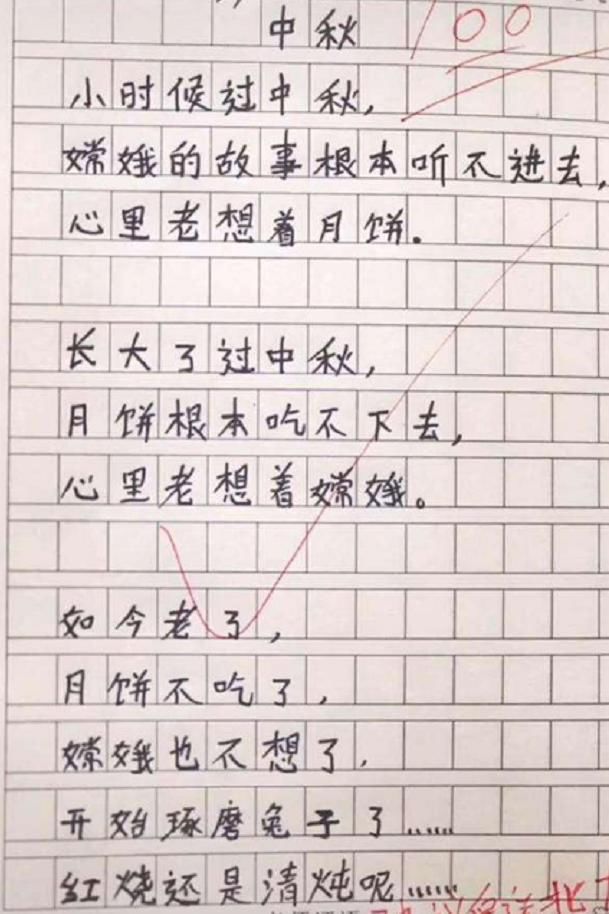 中秋
100
小时候过中秋,
嫦娥的故事根本听不进去,
心里老想着月饼.
长大了过中秋,
月饼根本吃不下去,
心里老想着嫦娥。
如今老了,
月饼不吃了,
嫦娥也不想了,
开始琢磨兔子了……
红烧还是清炖呢……